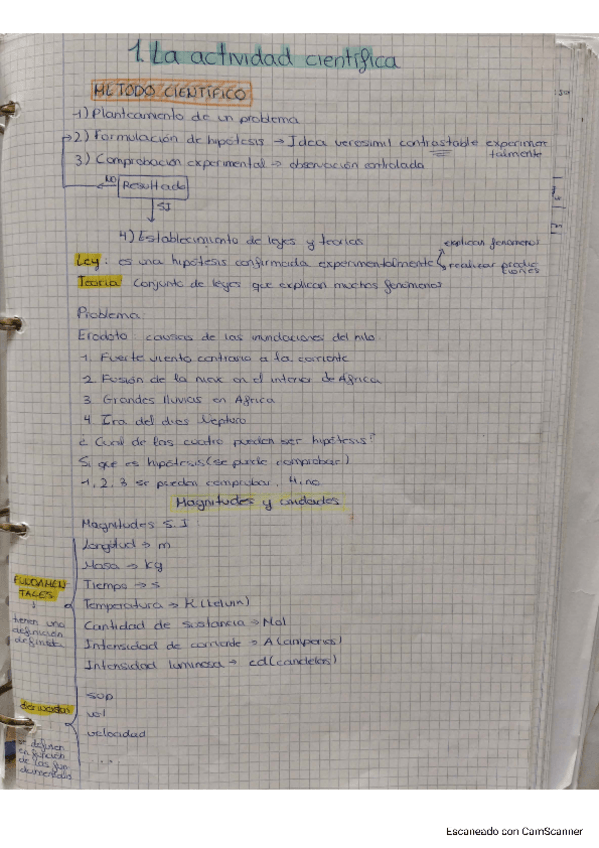 1. La actividad científica
MÉTODO CIENTÍFICO
1) Planteamiento de un problema
2) Formulación de hipótesis → Idea verosimil contrastable experimentalmente
3) Comprobación experimental → observación controlada
NO
Resultado
SI
4) Establecimiento de leyes y teorías
Ley: es una hipótesis confirmada experimentalmente
explicar fenómenos
realizar predicciones
Teoría: Conjunto de leyes que explican muchos fenómenos
Problema
Erodoto: causas de las inundaciones del nilo
1. Fuerte viento contrario a la corriente
2. Fusión de la nieve en el interior de África
3. Grandes lluvias en África
4. Ira del dios Neptuno
¿Cual de las cuatro pueden ser hipótesis?
Si que es hipótesis (se puede comprobar)
1, 2, 3 se pueden comprobar, 4, no
Magnitudes y unidades
Magnitudes S.I
FUNDAMENTALES
tienen una definición
Longitud → m
Masa → kg
Tiempo → s
Temperatura → K (kelvin)
Cantidad de sustancia → Mol
Intensidad de corriente → A (amperios)
Intensidad luminosa → cd (candelas)
derivadas
se definen en función de las fundamentales
sup
vol
velocidad
...
Escaneado con CamScanner